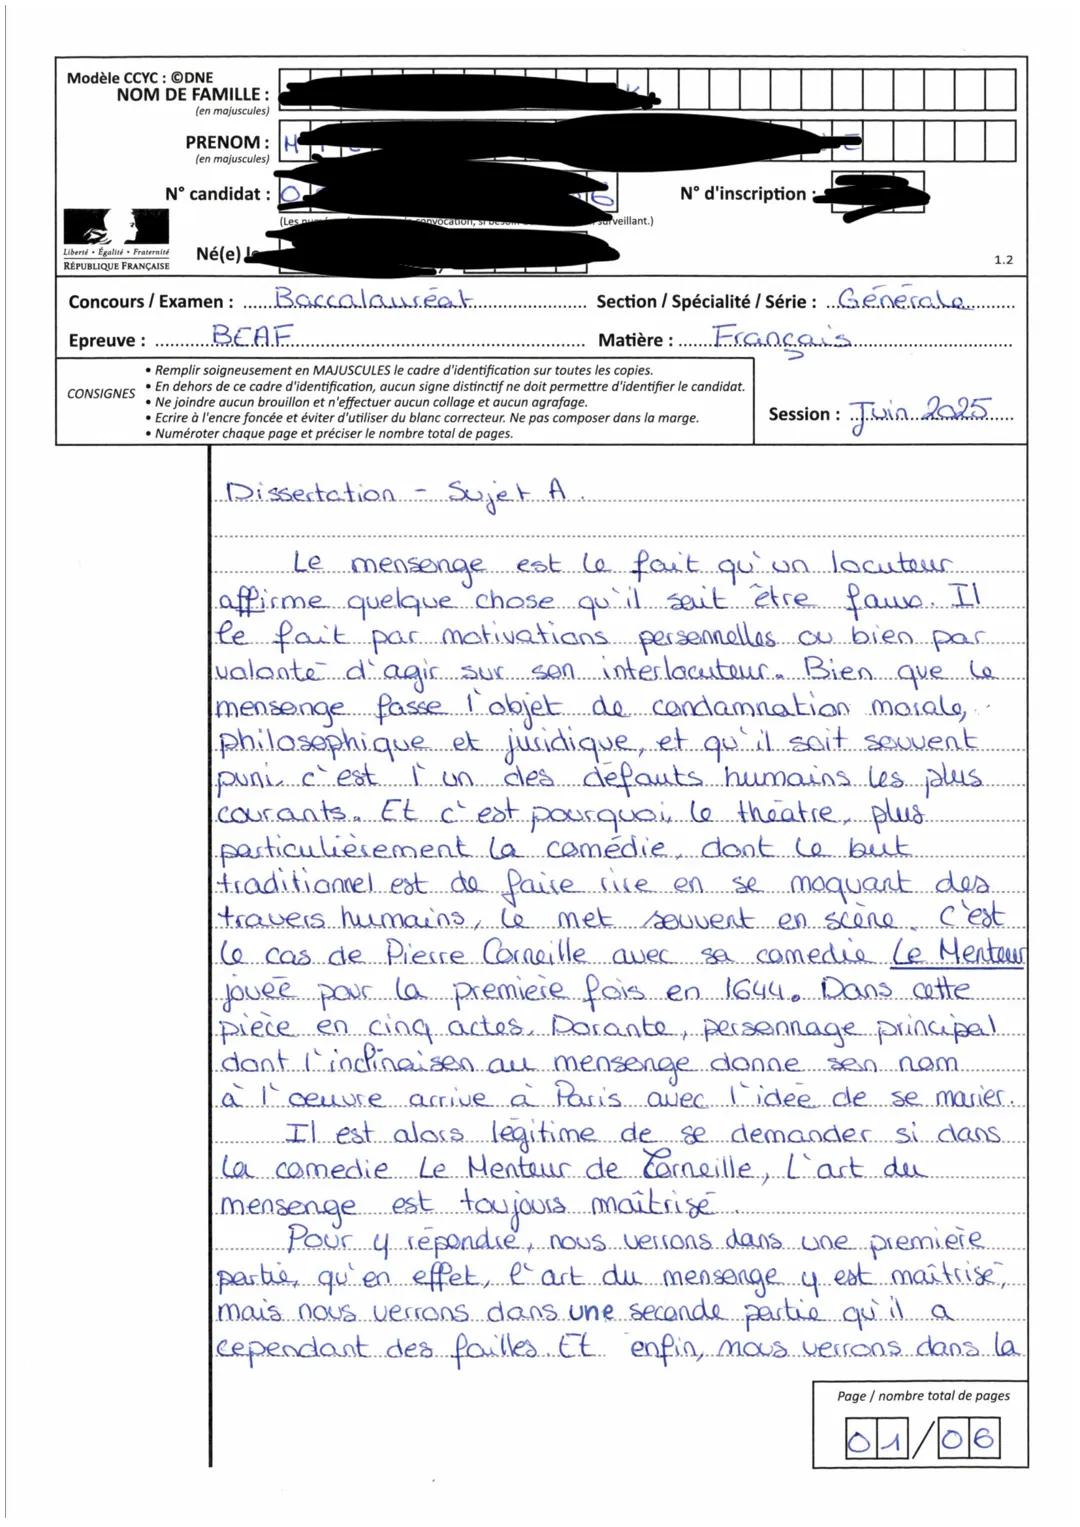 Modèle CCYC : ©DNE
NOM DE FAMILLE :
(en majuscules)
PRENOM :
(en majuscules)
N° candidat :
N° d'inscription :
surveillant.)
Liberté • Égalité • Fraternité
RÉPUBLIQUE FRANÇAISE
Né(e) le
1.2
Concours / Examen : Baccalauréat Section / Spécialité / Série : Générale
Epreuve : BEAF Matière : Français
CONSIGNES
• Remplir soigneusement en MAJUSCULES le cadre d'identification sur toutes les copies.
• En dehors de ce cadre d'identification, aucun signe distinctif ne doit permettre d'identifier le candidat.
• Ne joindre aucun brouillon et n'effectuer aucun collage et aucun agrafage.
• Ecrire à l'encre foncée et éviter d'utiliser du blanc correcteur. Ne pas composer dans la marge.
• Numéroter chaque page et préciser le nombre total de pages.
Session : Juin 2025
Dissertation - Sujet A.
Le mensonge est le fait qu'un locuteur
affirme quelque chose qu'il sait être faux. Il
le fait par motivations personnelles ou bien par
volonté d'agir sur son interlocuteur. Bien que le
mensonge fasse l'objet de condamnation morale,
philosophique et juridique, et qu'il soit souvent
puni, c'est l'un des défauts humains les plus
courants. Et c'est pourquoi, le théatre, plus
particulièrement la comédie, dont le but
traditionnel est de faire rire en se moquant des
travers humains, le met souvent en scène. C'est
le cas de Pierre Corneille avec sa comedie Le Menteur
jouée pour la première fois en 1644. Dans cette
pièce en cinq actes, Dorante, personnage principal
dont l'inclinaison au mensonge donne son nom
à l'œuvre arrive à Paris avec l'idée de se marier.
Il est alors légitime de se demander si dans
la comedie Le Menteur de Corneille, L'art du
mensonge est toujours maîtrisé.
Pour y répondre, nous verrons dans une première
partie, qu'en effet, l'art du mensonge y est maîtrisé,
mais nous verrons dans une seconde partie qu'il a
cependant des failles. Et enfin, nous verrons dans la
Page / nombre total de pages
01/06